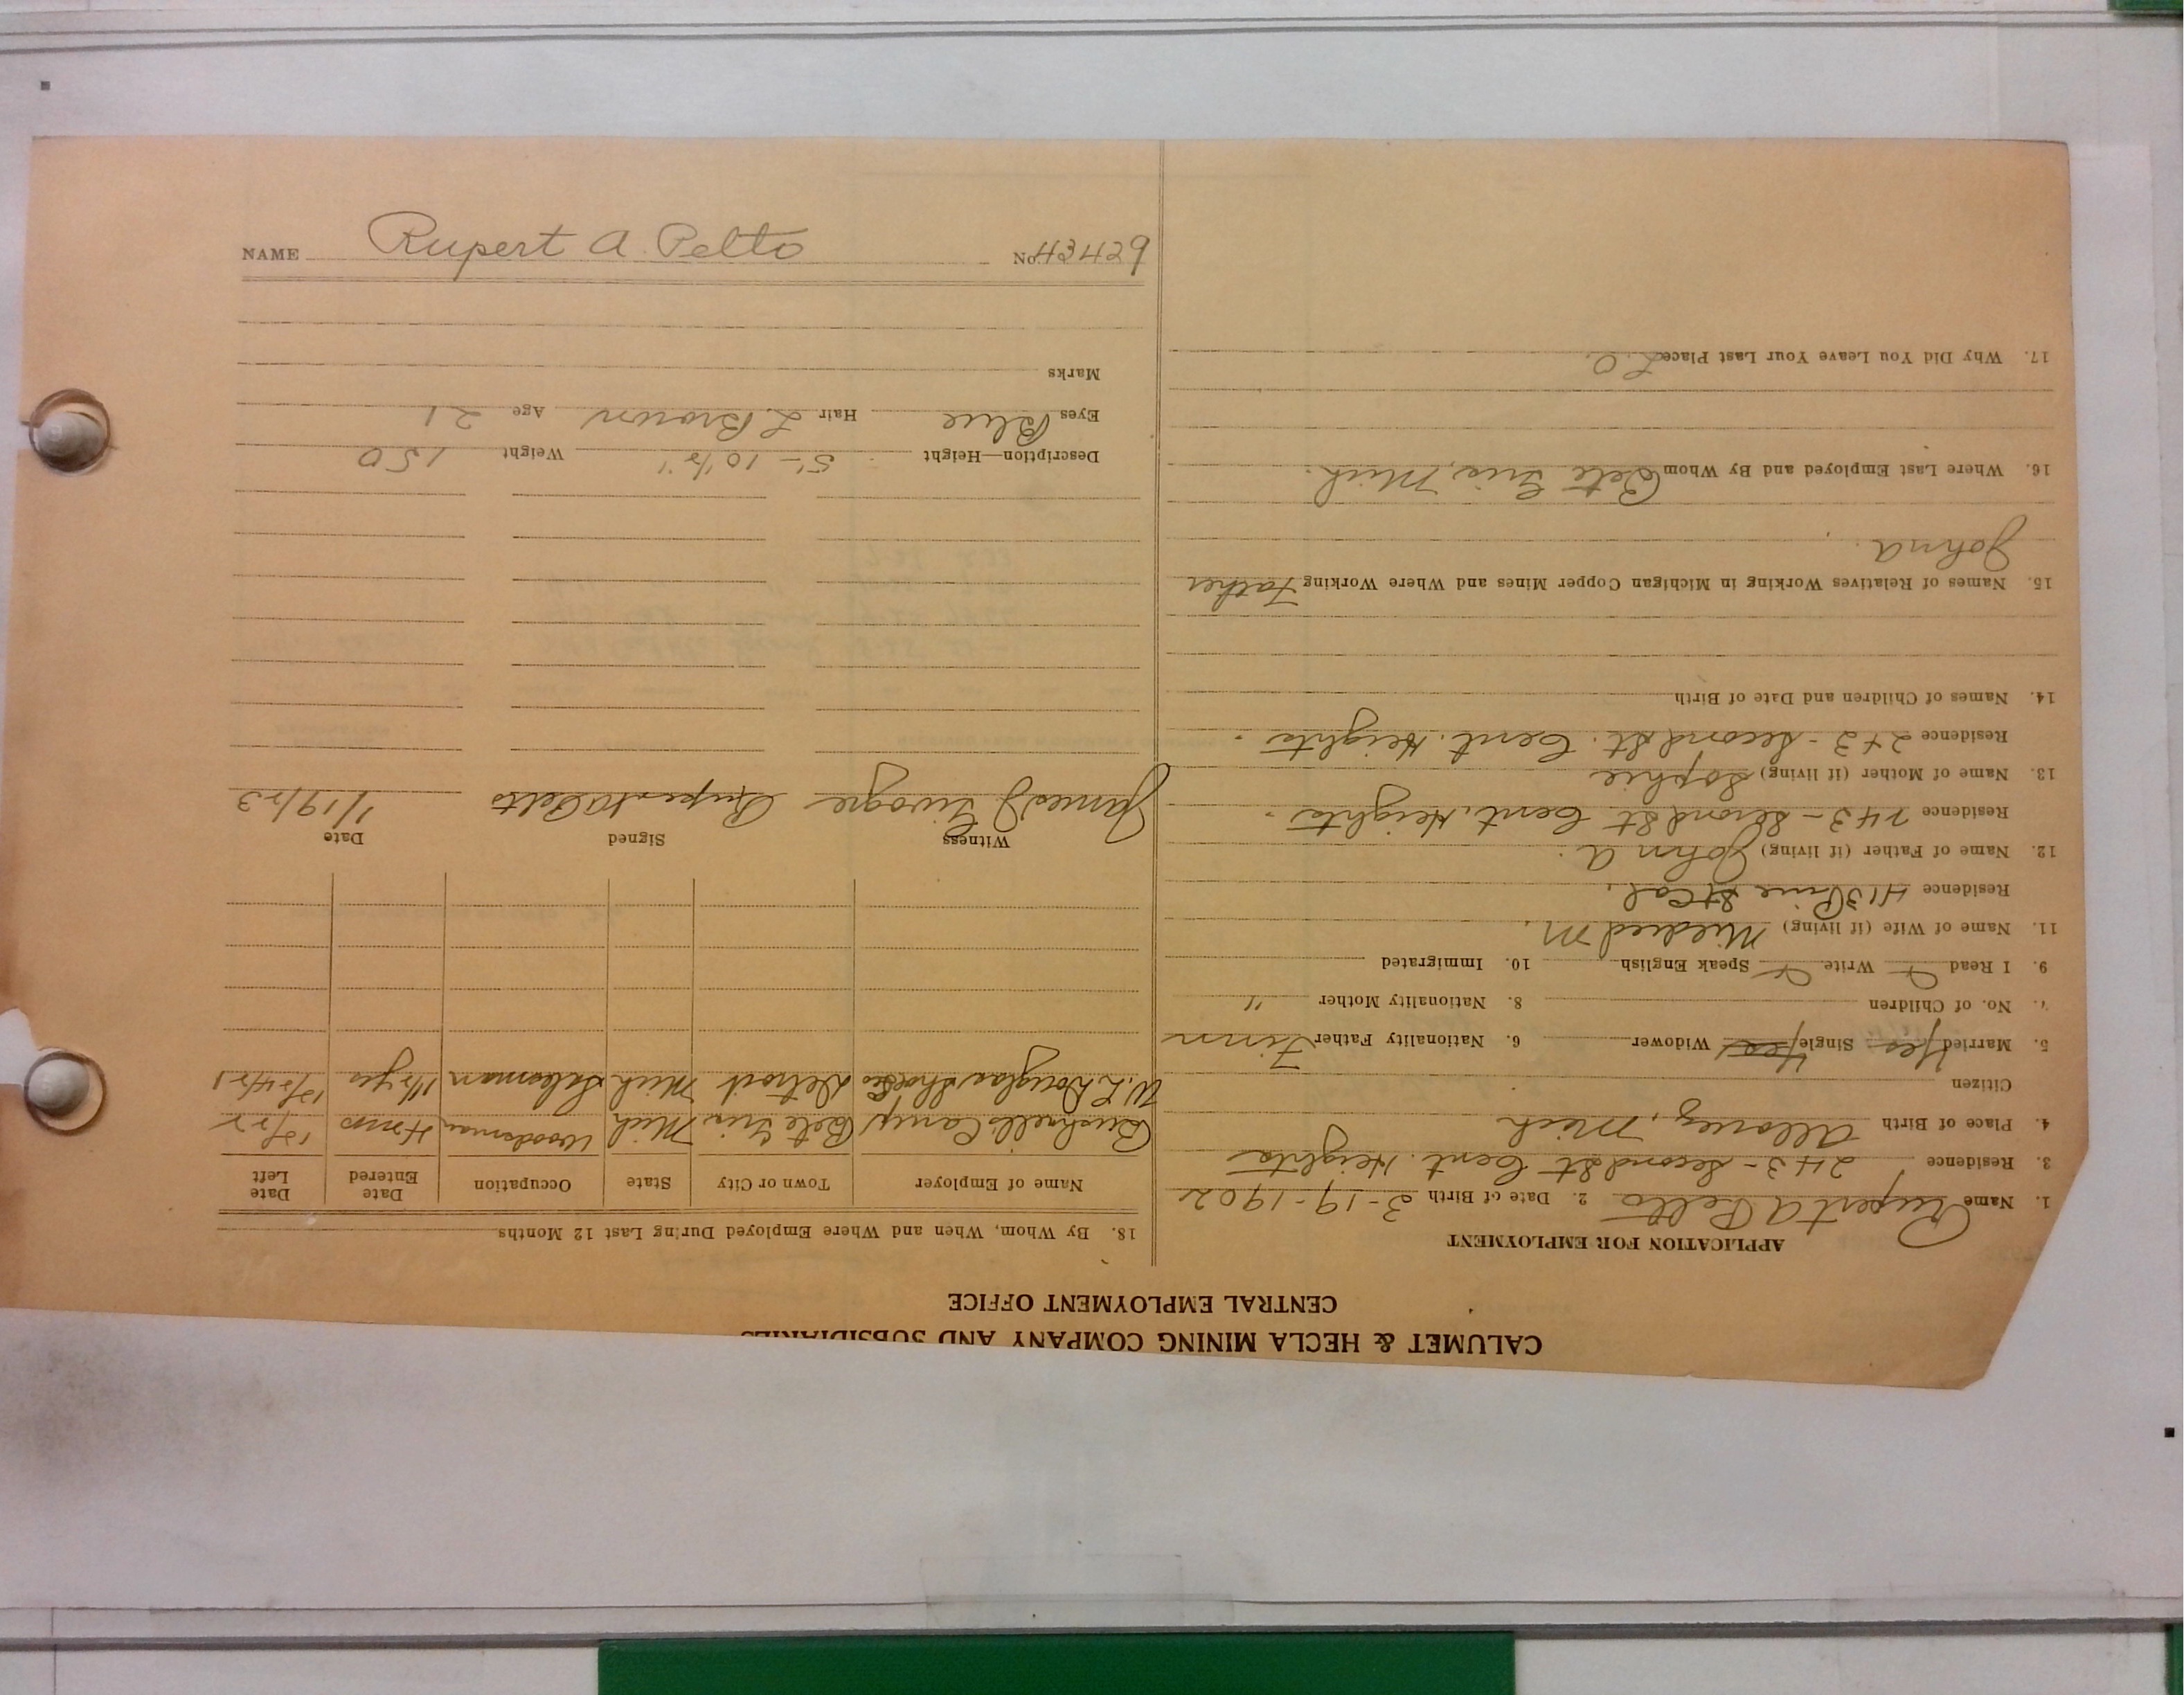 CALUMET & HECLA MINING COMPANY AND SUBSIDIARIES
CENTRAL EMPLOYMENT OFFICE
APPLICATION FOR EMPLOYMENT
1. Name Rupert A Pelto 2. Date of Birth 3-19-1902
3. Residence 243 - Second St Cent. Heights
4. Place of Birth Allouez, Mich
Citizen
5. Married Yes Single Yes Widower 6. Nationality Father Finn
7. No. of Children 8. Nationality Mother "
9. I Read Write Speak English 10. Immigrated
11. Name of Wife (if living) Mildred M.
Residence 413 Pine St Cal.
12. Name of Father (if living) John A.
Residence 243 - Second St Cent. Heights.
13. Name of Mother (if living) Sophie
Residence 243 - Second St. Cent. Heights.
14. Names of Children and Date of Birth
15. Names of Relatives Working in Michigan Copper Mines and Where Working Father
John A.
16. Where Last Employed and By Whom Bete Gris, Mich.
17. Why Did You Leave Your Last Place L.O.
18. By Whom, When and Where Employed During Last 12 Months
Name of Employer Town or City State Occupation Date Entered Date Left
Bushnell Camp Bete Gris Mich Woodsman 4 mo
W. L. Douglas Shoe Co Detroit Mich Mich Salesman 1 1/2 yrs
Witness Signed Date
James J Rupert A Pelto 1/19/23
Description—Height 5'-10 1/2" Weight 150
Eyes Blue Hair L Brown Age 21
Marks
NAME Rupert A. Pelto No. 43429